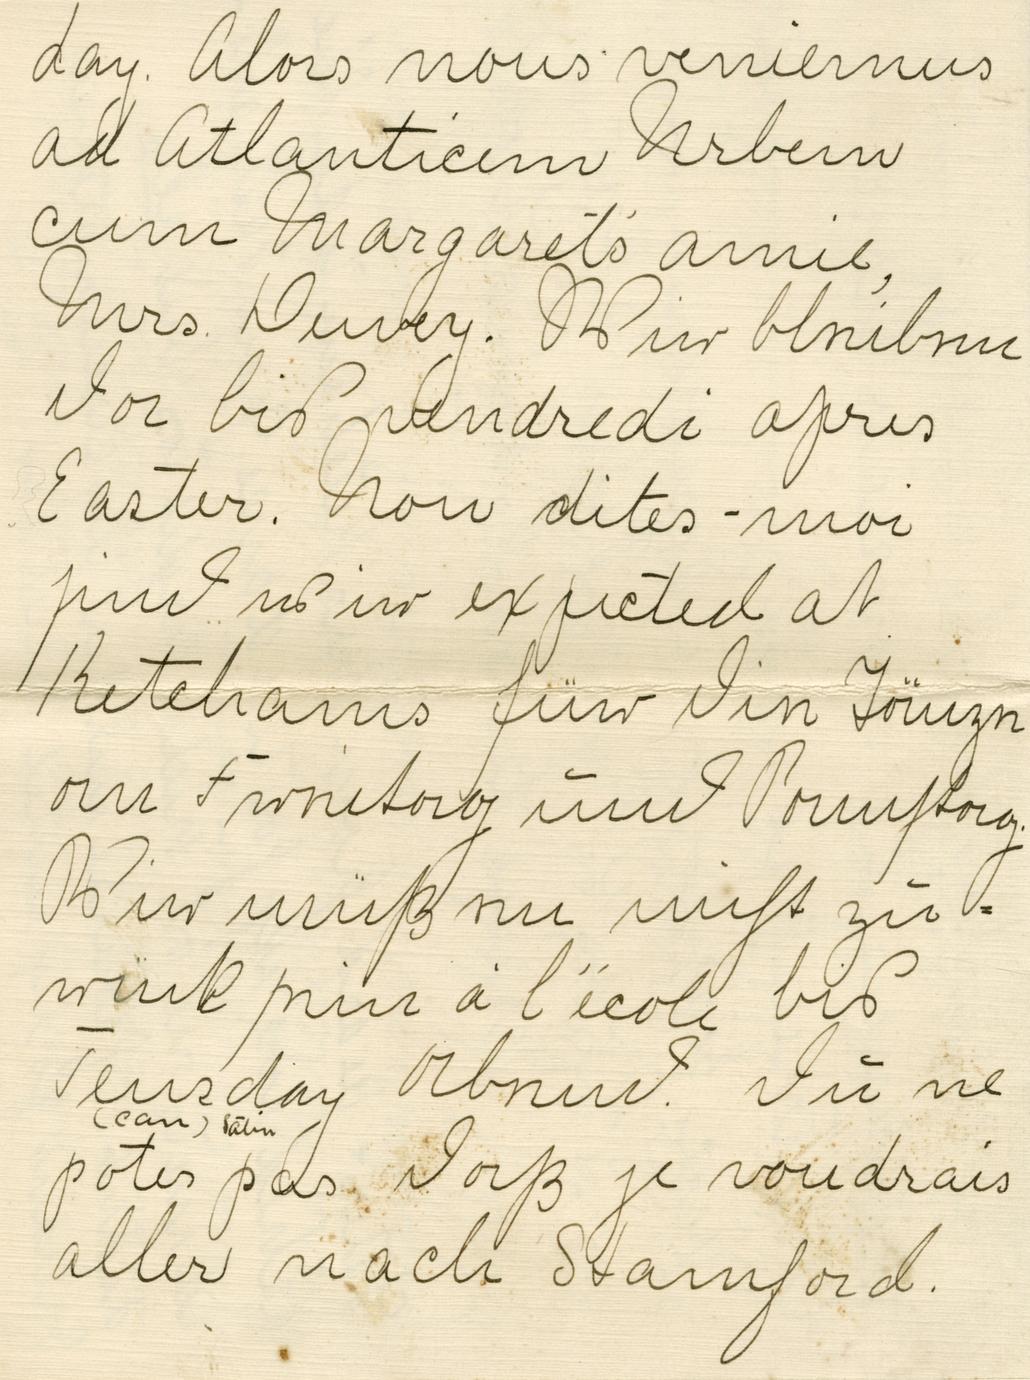 day. Alors nous veniemus
ad Atlanticem Urbem
cum Margaret's amie,
Mrs. Dewey. Wir bleiben
da bis vendredi apres
Easter. Now dites-moi
sind wir expected at
Ketchams für die Tänze
an Freitag und Samstag.
Wir müßen nicht zu-
rück sein à l'école bis
Teusday Abend. Du ne
(can) Latin
potes pas daß je voudrais
aller nach Stamford.